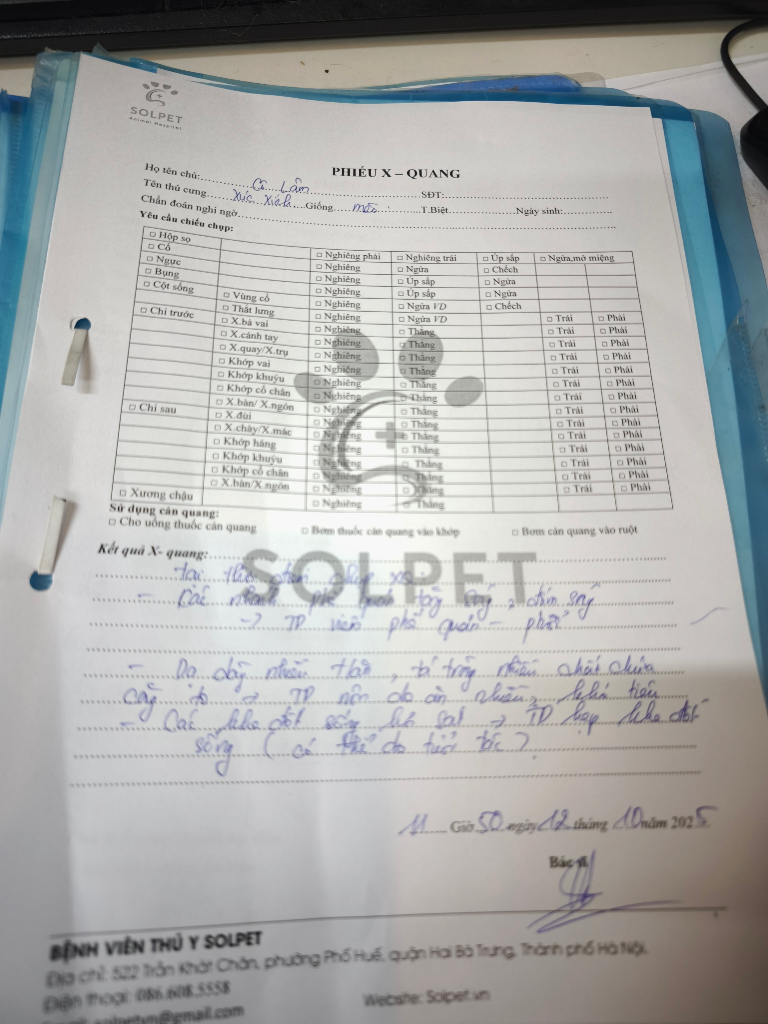 SOLPET
Animal Hospital
PHIẾU X – QUANG
Họ tên chủ: Cô Lâm SĐT:
Tên thú cưng Xúc Xích Giống mèo T.Biệt Ngày sinh:
Chẩn đoán nghi ngờ
Yêu cầu chiếu chụp:
□ Hộp sọ □ Nghiêng phải □ Nghiêng trái □ Úp sấp □ Ngửa,mở miệng
□ Cổ □ Nghiêng □ Ngửa □ Chếch
□ Ngực □ Nghiêng □ Úp sấp □ Ngửa
□ Bụng □ Nghiêng □ Úp sấp □ Ngửa
□ Cột sống □ Vùng cổ □ Nghiêng □ Ngửa VD □ Chếch
□ Thắt lưng □ Nghiêng □ Ngửa VD □ Trái □ Phải
□ Chi trước □ X.bả vai □ Nghiêng □ Thẳng □ Trái □ Phải
□ X.cánh tay □ Nghiêng □ Thẳng □ Trái □ Phải
□ X.quay/X.trụ □ Nghiêng □ Thẳng □ Trái □ Phải
□ Khớp vai □ Nghiêng □ Thẳng □ Trái □ Phải
□ Khớp khuỷu □ Nghiêng □ Thẳng □ Trái □ Phải
□ Khớp cổ chân □ Nghiêng □ Thẳng □ Trái □ Phải
□ X.bàn/ X.ngón □ Nghiêng □ Thẳng □ Trái □ Phải
□ Chi sau □ X.đùi □ Nghiêng □ Thẳng □ Trái □ Phải
□ X.chày/X.mác □ Nghiêng □ Thẳng □ Trái □ Phải
□ Khớp háng □ Nghiêng □ Thẳng □ Trái □ Phải
□ Khớp khuỷu □ Nghiêng □ Thẳng □ Trái □ Phải
□ Khớp cổ chân □ Nghiêng □ Thẳng □ Trái □ Phải
□ X.bàn/X.ngón □ Nghiêng □ Thẳng □ Trái □ Phải
□ Xương chậu □ Nghiêng □ Thẳng
Sử dụng cản quang:
□ Cho uống thuốc cản quang □ Bơm thuốc cản quang vào khớp □ Bơm cản quang vào ruột
Kết quả X- quang:
SOLPET
Tại thời điểm chụp
- Các nhánh phế quản tăng sáng, đám sáng
→ TD viêm phế quản - phổi
- Dạ dày nhiều thức, tá tràng nhiều chất chứa
căng to → TD nôn do ăn nhiều, khó tiêu
- Các khe đốt sống hơi sát → TD hẹp khe đốt
sống (có thể do tuổi tác)
11 Giờ 50 ngày 12 tháng 10 năm 2025
Bác sĩ
BỆNH VIỆN THÚ Y SOLPET
Địa chỉ: 522 Trần Khát Chân, phường Phố Huế, quận Hai Bà Trưng, Thành phố Hà Nội.
Điện thoại: 086.608.5558
Website: Solpet.vn
Email: solpetvn@gmail.com